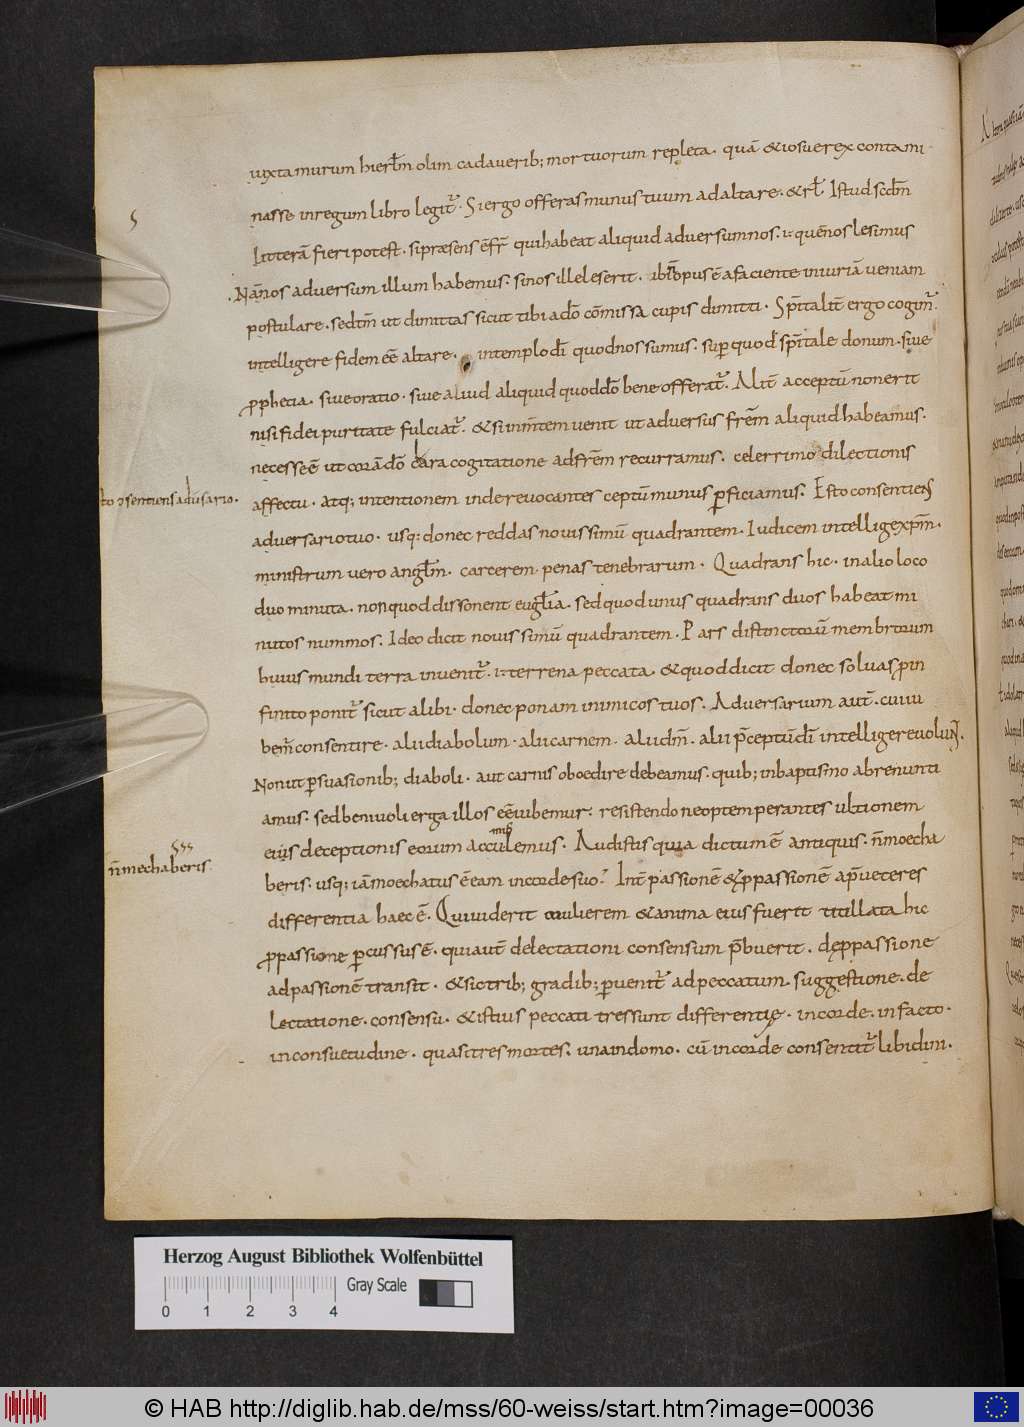 iuxta murum hierl̅m olim cadauerib; mortuorum repleta. quā & iosue rex contami
nasse in regum libro legit̅. Si ergo offeras munus tuum ad altare. & rl̅ Istud scd̅m
litterā fieri potest. si præsens ē fr̅ qui habeat aliquid aduersum nos. i: quē nos lesimus
Nā nos aduersum illum habemus. si nos ille leserit. ibi opus ē a faciente iniuriā ueniam
postulare. sed tm̅ ut dimittas sicut tibi a do̅ co̅missa cupis dimitti. Sp̅italit̅ ergo cogim̅.
intelligere fidem eē altare. in templo di̅ quod nos sumus. sup quod sp̅itale donum. siue
pphetia. siue oratio. siue aliud aliquid quod do̅ bene offerat̅. Alit̅ acceptū non erit
nisi fidei puritate fulciat̅. & si in m̅tem uenit ut aduersus fr̅em aliquid habeamus.
necesse ē ut corā do̅ cara cogitatione ad fr̅em recurramus. celerrimo dilectionis
affectu. atq; intentionem inde reuocantes ceptū munus pficiamus. Esto consentiens
to ɔsentiens adusario.
aduersario tuo. usq; donec reddas nouissimū quadrantem. Iudicem intellige xp̅m.
ministrum uero angl̅m. carcerem penas tenebrarum. Quadrans hic. in alio loco
duo minuta. non quod dissonent eugl̅ia. sed quod unus quadrans duos habeat mi
nutos nummos. Ideo dicit nouissimū quadrantem. Pars distinctorū membrorum
huius mundi terra inuenit̅. i: terrena peccata. & quod dicit donec soluas p in
finito ponit̅ sicut alibi. donec ponam inimicos tuos. Aduersarium aut̅. cui iu
bem̅ consentire. alii diabolum. alii carnem. alii dm̅. alii p̅ceptū di̅ intelligere uolunt.
Non ut psuasionib; diaboli. aut carnis oboedire debeamus. quib; in baptismo abrenunti
amus. sed beniuoli erga illos eē iubemur. resistendo ne optemperantes ultionem
eius deceptionis eorum accumulemus. Audistis quia dictum ē antiquis. n̅ moecha
n̅ mechaberis.
beris. usq; iā moechatus ē eam in corde suo. Int̅ passionē & ppassionē ap̅ ueteres
differentia haec ē. Qui uiderit mulierem & anima eius fuerit titillata hic
ppassione pcussus ē. qui aut̅ delectationi consensum p̅buerit. de ppassione
ad passionē transit. & sic trib; gradib; puenit̅ ad peccatum. suggestione. de
lectatione. consensu. & istius peccati tres sunt differentie. in corde. in facto.
in consuetudine. quasi tres mortes. una in domo. cū in corde consentit̅ libidini.
Herzog August Bibliothek Wolfenbüttel
Gray Scale
0 1 2 3 4
© HAB http://diglib.hab.de/mss/60-weiss/start.htm?image=00036